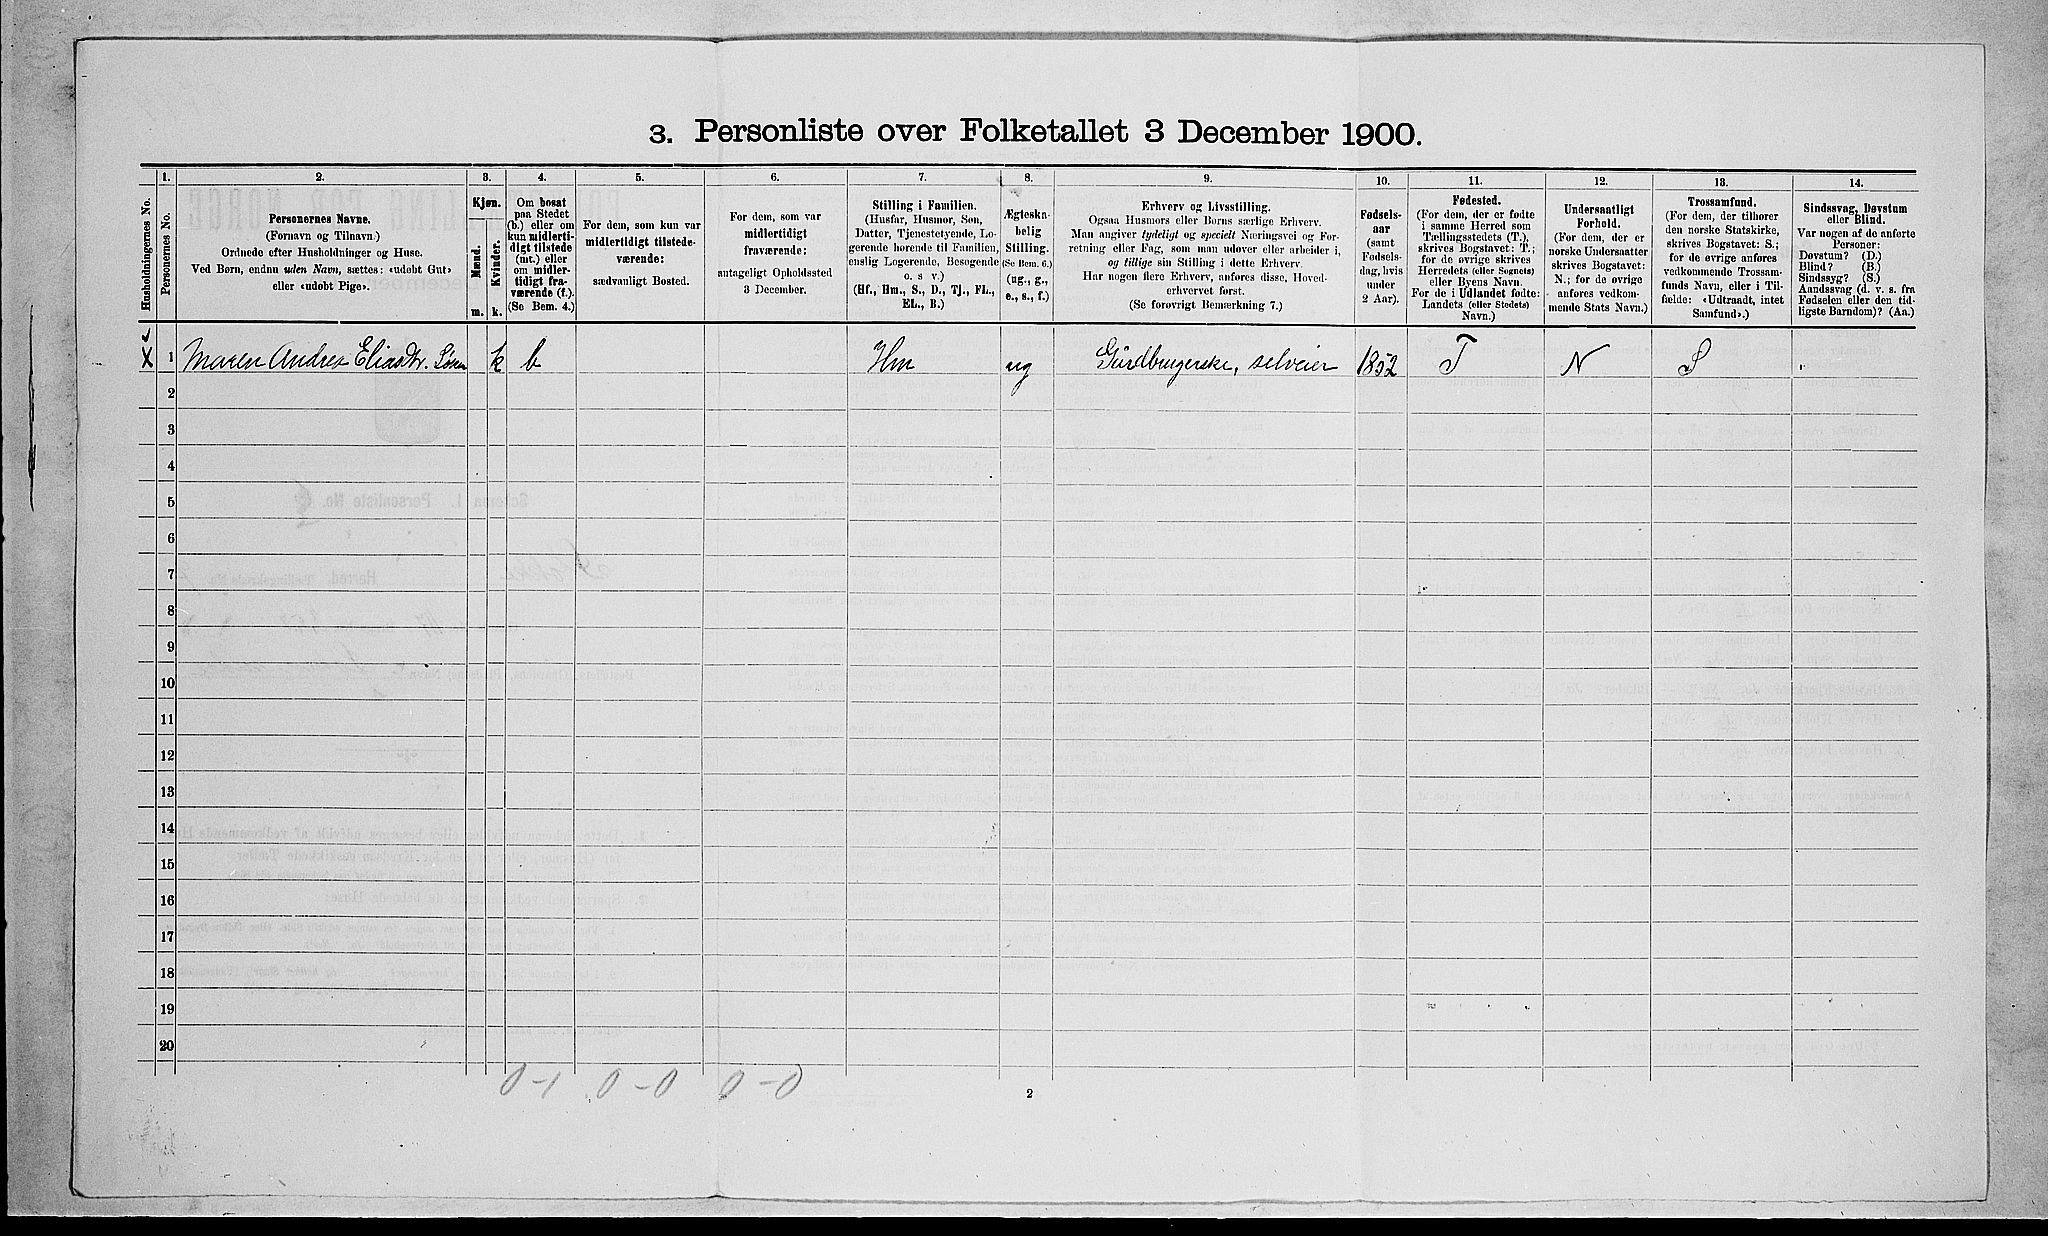 3. Personliste over Folketallet 3 December 1900.
Husholdningernes No.
1.
Personernes No.
2.
Personernes Navne.
(Fornavn og Tilnavn.)
Ordnede efter Husholdninger og Huse.
Ved Børn, endnu uden Navn, sættes: «udøbt Gut»
eller «udøbt Pige».
3.
Kjøn.
Mænd.
Kvinder.
m. k.
4.
Om bosat
paa Stedet
(b.) eller om
kun midlerti-
digt tilstede
(mt.) eller
om midler-
tidigt fra-
værende (f.).
(Se Bem. 4.)
5.
For dem, som kun var
midlertidigt tilstede-
værende:
sædvanligt Bosted.
6.
For dem, som var
midlertidigt
fraværende:
antageligt Opholdssted
3 December.
7.
Stilling i Familien.
(Husfar, Husmor, Søn,
Datter, Tjenestetyende, Lo-
gerende hørende til Familien,
enslig Logerende, Besøgende
o. s v.)
(Hf., Hm., S., D., Tj., FL.,
EL., B.)
8.
Ægteska-
belig
Stilling.
(Se Bem. 6.)
(ug., g.,
e., s., f.)
9.
Erhverv og Livsstilling.
Ogsaa Husmors eller Børns særlige Erhverv.
Man angiver tydeligt og specielt Næringsvei og For-
retning eller Fag, som man udøver eller arbeider i,
og tillige sin Stilling i dette Erhverv.
Har nogen flere Erhverv, anføres disse, Hoved-
erhvervet først.
(Se forøvrigt Bemærkning 7.)
10.
Fødsels-
aar
(samt
Fødsels-
dag, hvis
under
2 Aar).
11.
Fødested.
(For dem, der er fødte
i samme Herred som
Tællingsstedets (T.),
skrives Bogstavet: T.;
for de øvrige skrives
Herredets (eller Sognets)
eller Byens Navn.
For de i Udlandet fødte:
Landets (eller Stedets)
Navn.)
12.
Undersaatligt
Forhold.
(For dem, der er
norske Undersaatter
skrives Bogstavet:
N.; for de øvrige
anføres vedkom-
mende Stats Navn.)
13.
Trossamfund.
(For dem, der tilhører
den norske Statskirke,
skrives Bogstavet: S.;
for de øvrige anføres
vedkommende Trossam-
funds Navn, eller i Til-
fælde: «Udtraadt, intet
Samfund».)
14.
Sindssvag, Døvstum
eller Blind.
Var nogen af de anførte
Personer:
Døvstum? (D.)
Blind? (B.)
Sindssyg? (S.)
Aandssvag (d. v. s. fra
Fødselen eller den tid-
ligste Barndom)? (Aa.)
X 1 Maren Andrea k b Hm ug Gårdbrugerske, selveier 1852 T N S
2
3
4
5
6
7
8
9
10
11
12
13
14
15
16
17
18
19
20
0-1 0-0 0-0
2